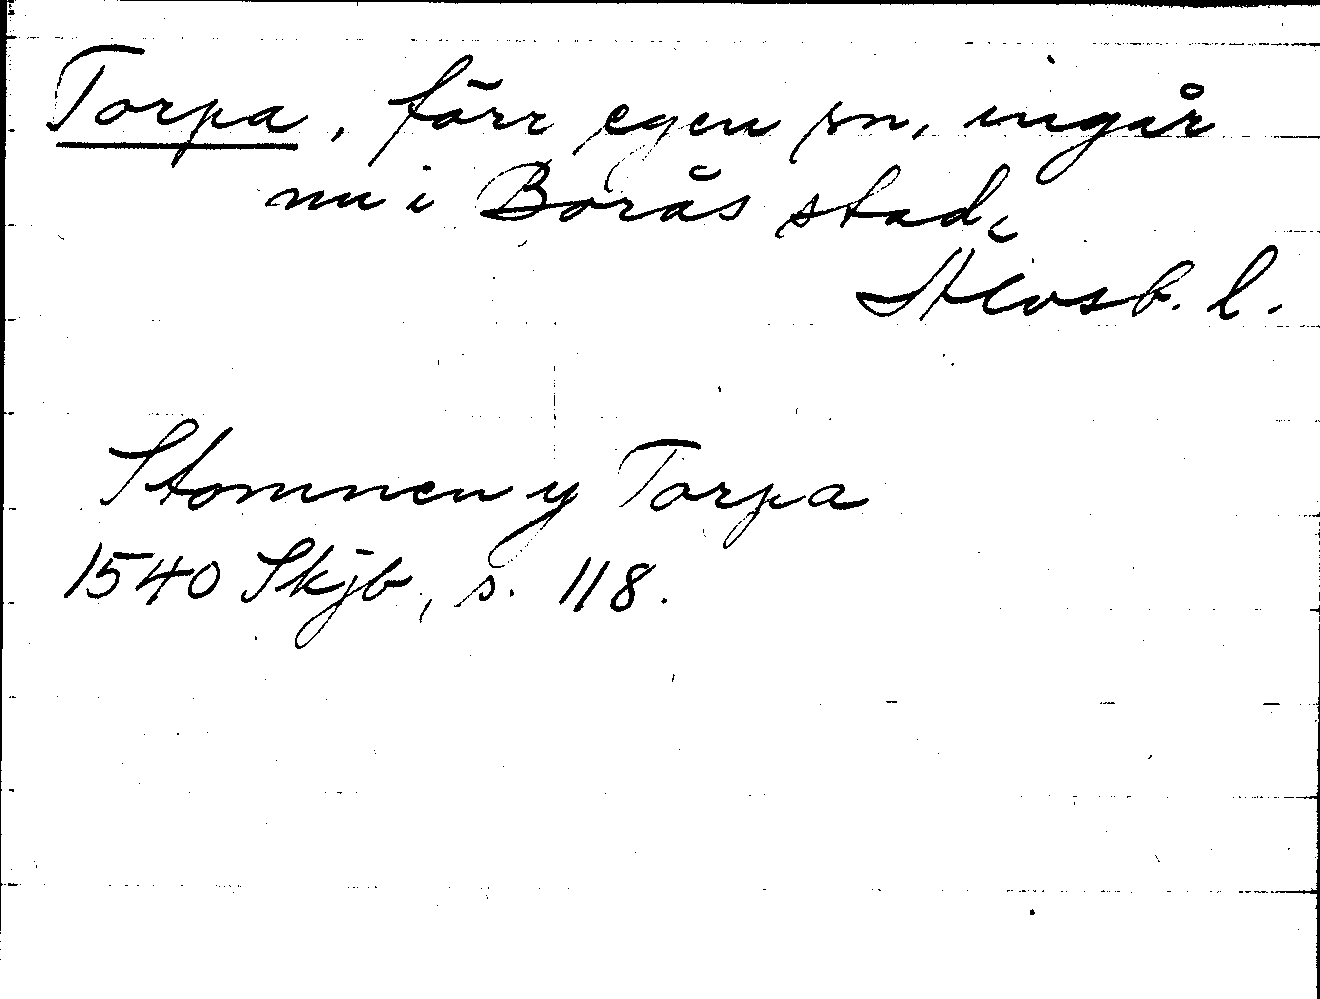 Torpa, förr egen sn, ingår
nu i Borås stad,
Älvsb. l.
Stomnen y Torpa
1540 Skjb, s. 118.